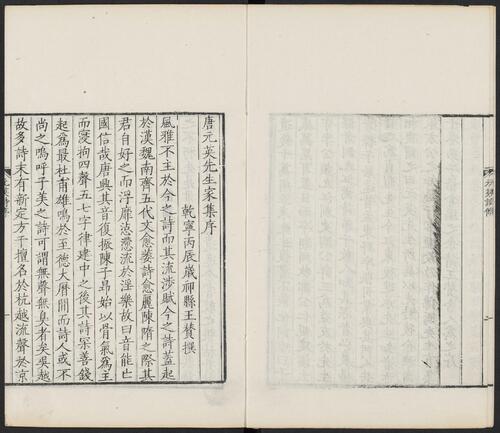 唐元英先生家集序
乾寧丙辰歲祁縣王贊撰
風雅不主於今之詩而其流涉賦今之詩蓋起
於漢魏南齊五代文愈萎詩愈麗陳隋之際其
君自好之而浮靡惉懘流於淫樂故曰音能亡
國信哉唐興其音復振陳子昂始以骨氣爲主
而寖拘四聲五七字律建中之後其詩冞善錢
起爲最杜甫雄鳴於至德大曆間而詩人或不
尚之嗚呼子美之詩可謂無聲無臭者矣吳越
故多詩末有新定方干擅名於杭越流聲於京